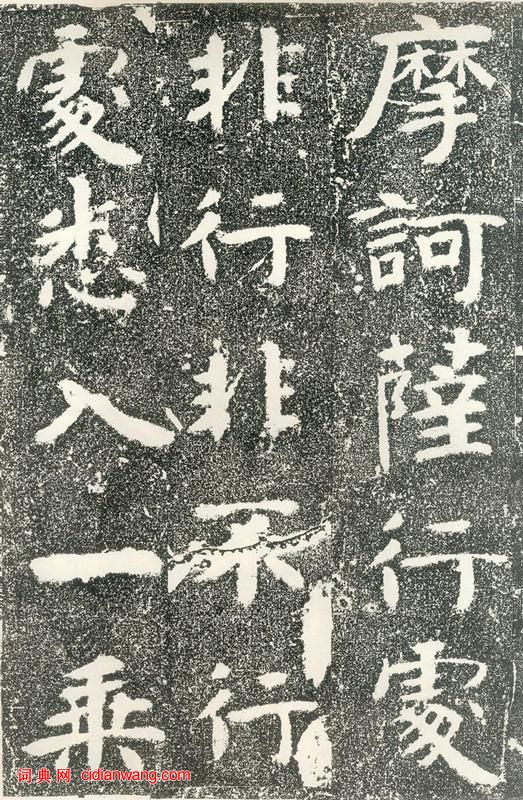 摩訶薩行處
非行非不行
處悉入一乘
词典网 cidianwang.com